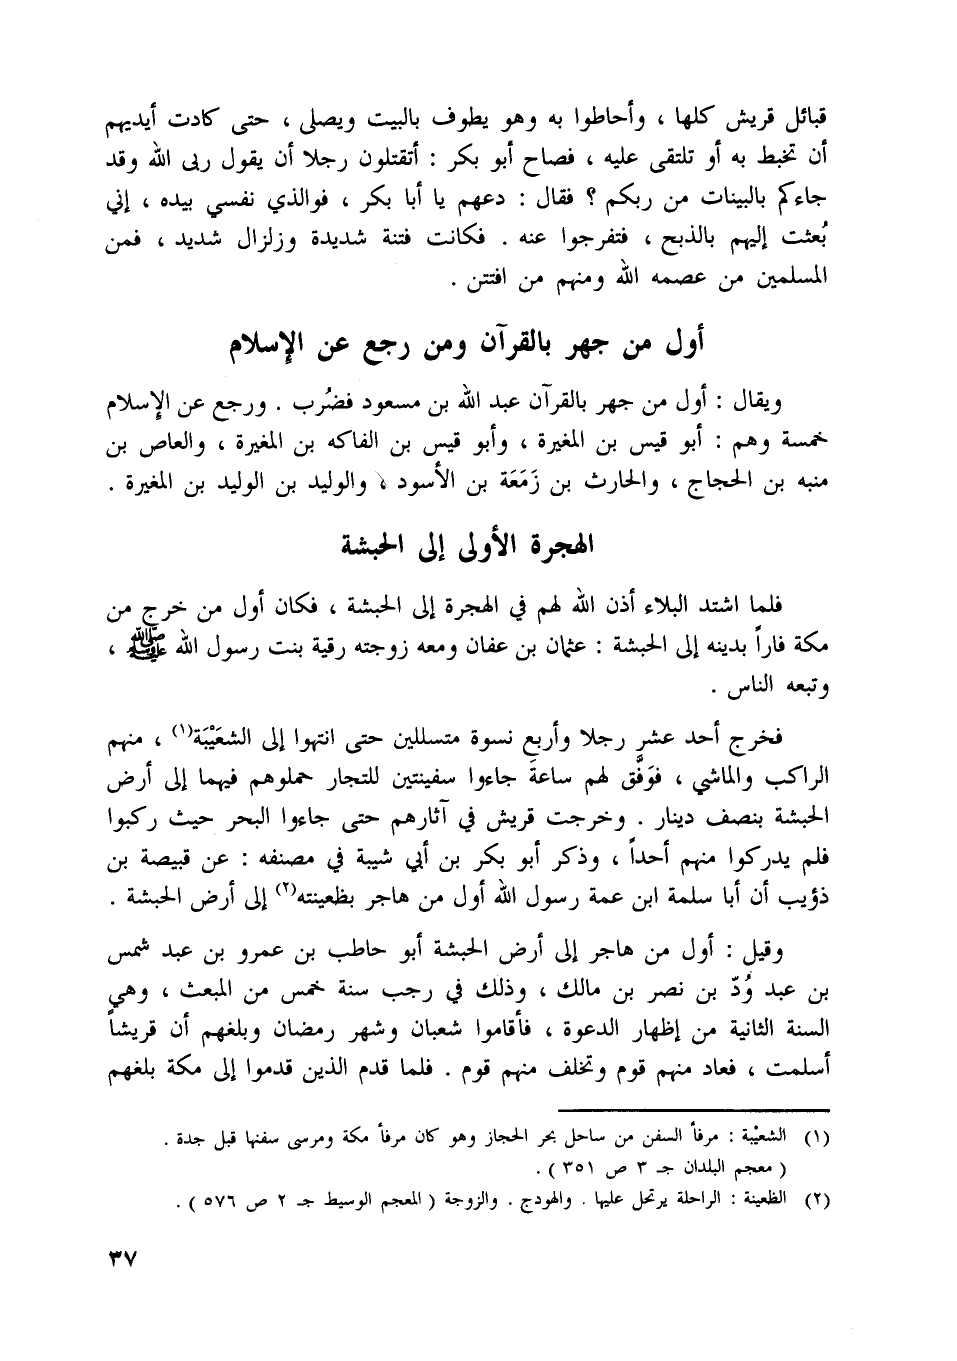 قبائل قريش كلها ، وأحاطوا به وهو يطوف بالبيت ويصلى ، حتى كادت أيديهم
أن تخبط به أو تلتقى عليه ، فصاح أبو بكر : أتقتلون رجلا أن يقول ربى الله وقد
جاءكم بالبينات من ربكم ؟ فقال : دعهم يا أبا بكر ، فوالذي نفسي بيده ، إني
بُعثت إليهم بالذبح ، فتفرجوا عنه . فكانت فتنة شديدة وزلزال شديد ، فمن
المسلمين من عصمه الله ومنهم من افتتن .
أول من جهر بالقرآن ومن رجع عن الإسلام
ويقال : أول من جهر بالقرآن عبد الله بن مسعود فضُرب . ورجع عن الإسلام
خمسة وهم : أبو قيس بن المغيرة ، وأبو قيس بن الفاكه بن المغيرة ، والعاص بن
منبه بن الحجاج ، والحارث بن زَمَعَة بن الأسود ، والوليد بن الوليد بن المغيرة .
الهجرة الأولى إلى الحبشة
فلما اشتد البلاء أذن الله لهم في الهجرة إلى الحبشة ، فكان أول من خرج من
مكة فاراً بدينه إلى الحبشة : عثمان بن عفان ومعه زوجته رقية بنت رسول الله ﷺ ،
وتبعه الناس .
فخرج أحد عشر رجلا وأربع نسوة متسللين حتى انتهوا إلى الشعَيْبَة(١) ، منهم
الراكب والماشي ، فوَفَّق لهم ساعةَ جاءوا سفينتين للتجار حملوهم فيهما إلى أرض
الحبشة بنصف دينار . وخرجت قريش في آثارهم حتى جاءوا البحر حيث ركبوا
فلم يدركوا منهم أحداً ، وذكر أبو بكر بن أبي شيبة في مصنفه : عن قبيصة بن
ذؤيب أن أبا سلمة ابن عمة رسول الله أول من هاجر بظعينته(٢) إلى أرض الحبشة .
وقيل : أول من هاجر إلى أرض الحبشة أبو حاطب بن عمرو بن عبد شمس
بن عبد وُدّ بن نصر بن مالك ، وذلك في رجب سنة خمس من المبعث ، وهي
السنة الثانية من إظهار الدعوة ، فأقاموا شعبان وشهر رمضان وبلغهم أن قريشاً
أسلمت ، فعاد منهم قوم وتخلف منهم قوم . فلما قدم الذين قدموا إلى مكة بلغهم
(١) الشعيْبة : مرفأ السفن من ساحل بحر الحجاز وهو كان مرفأ مكة ومرسى سفنها قبل جدة .
( معجم البلدان جـ ٣ ص ٣٥١ ) .
(٢) الظعينة : الراحلة يرتحل عليها . والهودج . والزوجة ( المعجم الوسيط جـ ٢ ص ٥٧٦ ) .
٣٧